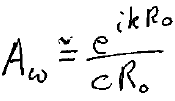 A_ω ≅ e^{ikR₀} / cR₀